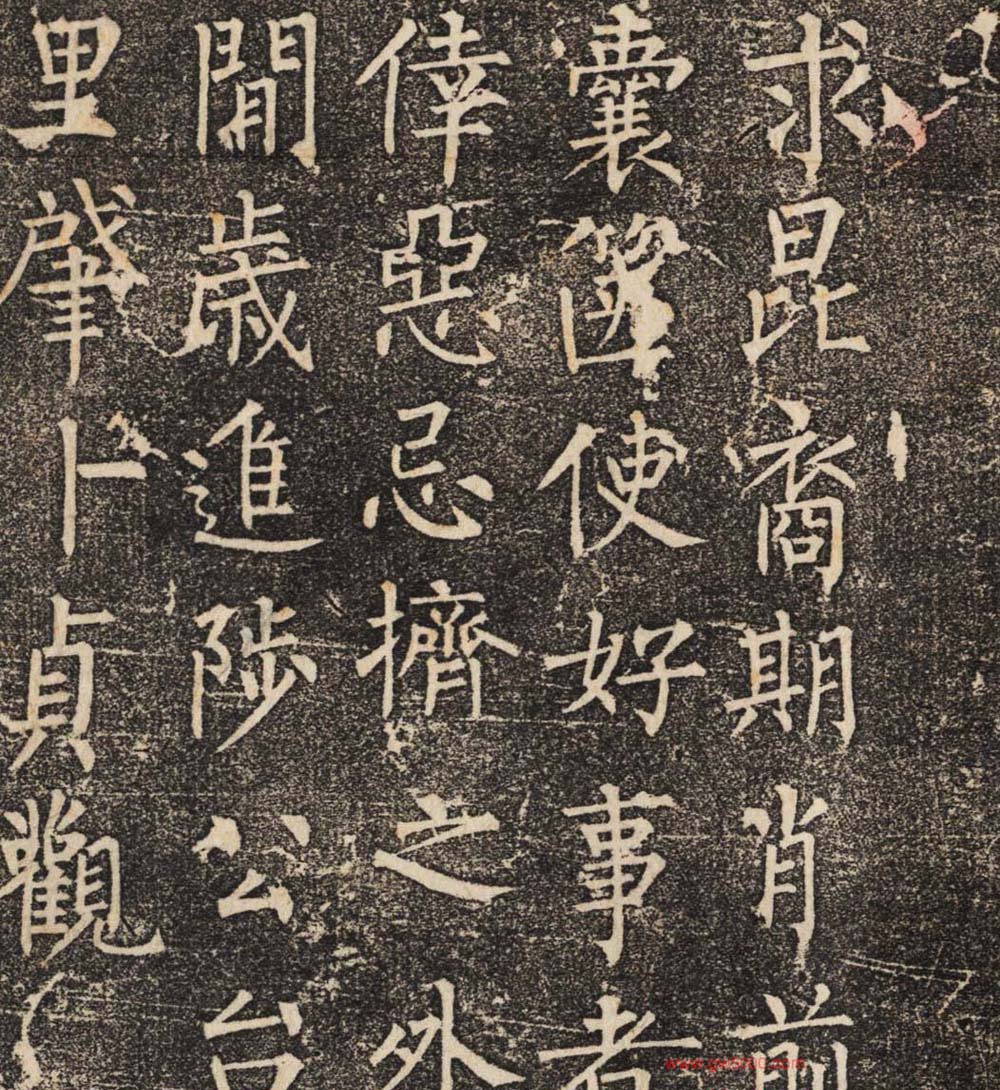 求昆裔期肖前
囊箧使好事者
倖惡忌擠之外
閒歲進陟公台
里肇卜貞觀
www.gw5000.com